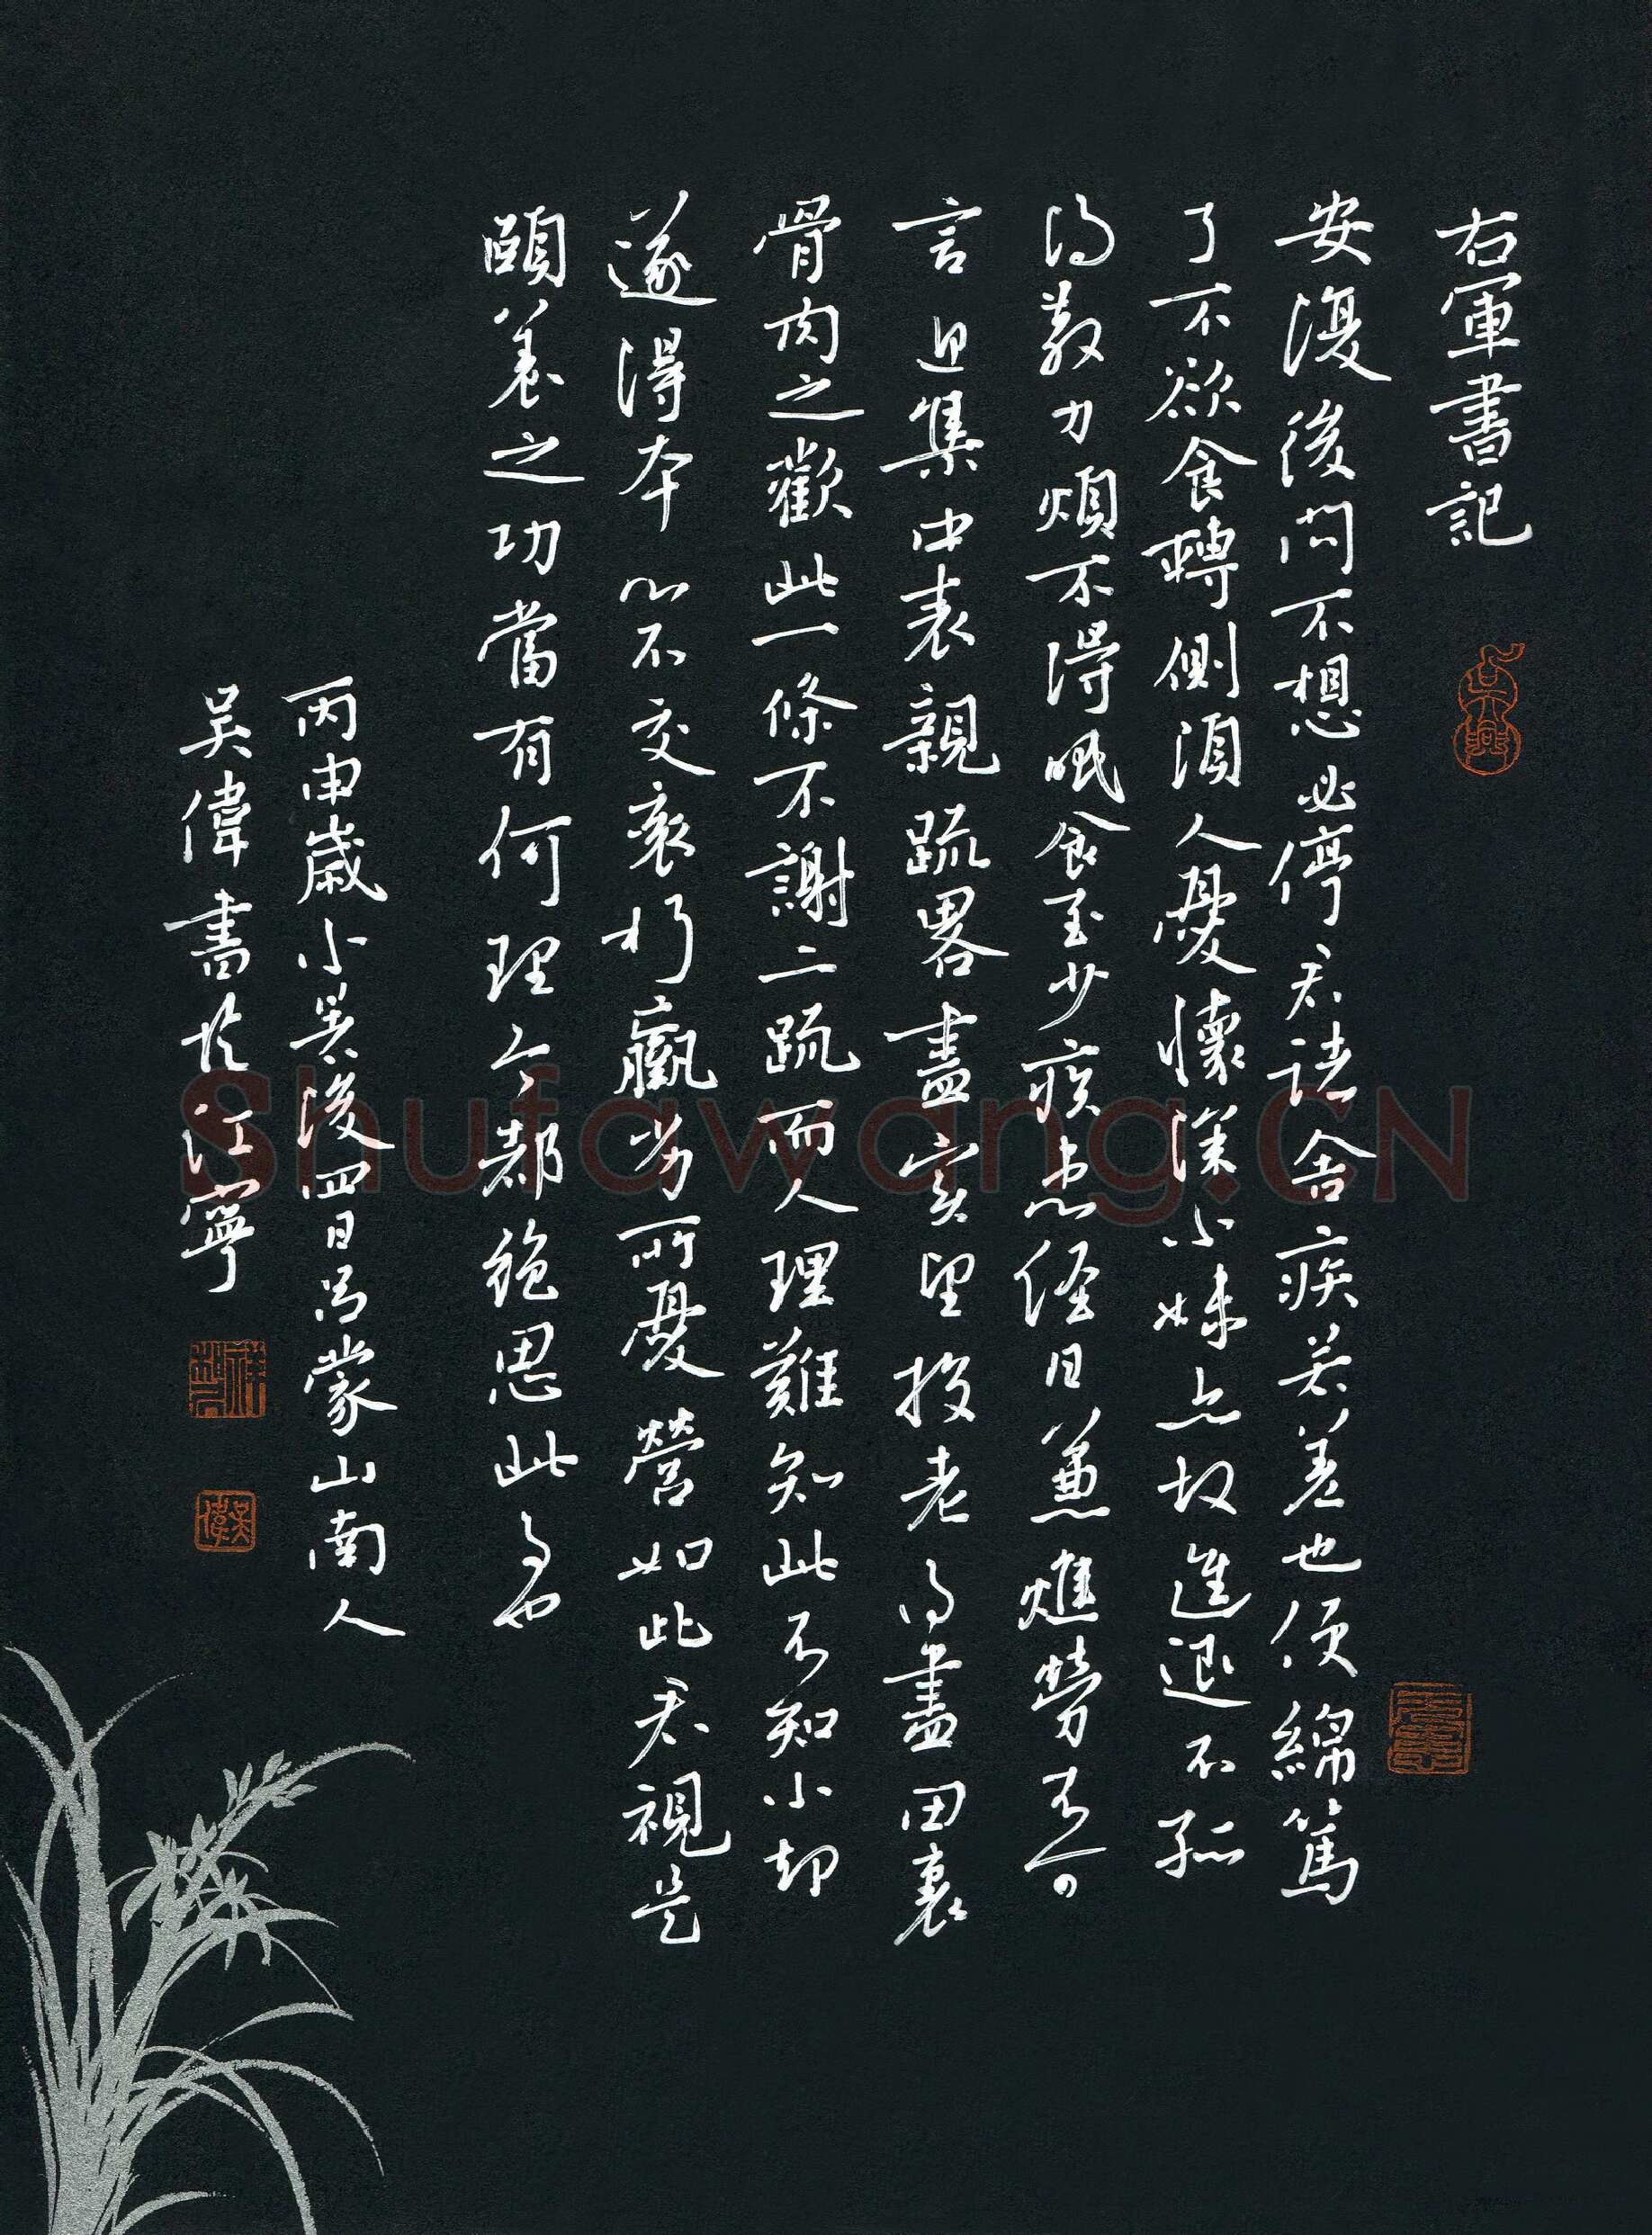 右軍書記
安復後問不想必停君諸舍疾苦差也便綿篤
了不欲食轉側須人憂懷深小妹亦故進退不孤
得散力煩不得眠食至少疾患經日兼燋勞不可
言迎集中表親疏畧盡實望投老得盡田裏
骨肉之歡此一條不謝二疏而人理難知此不知小却
遂得本心不交衰朽羸劣所憂營如此君視是
頤養之功當有何理今都絶思此事也
丙申歲小暑後四日呂蒙山南人
吴偉書於江寧
吴偉
Shufawang.CN